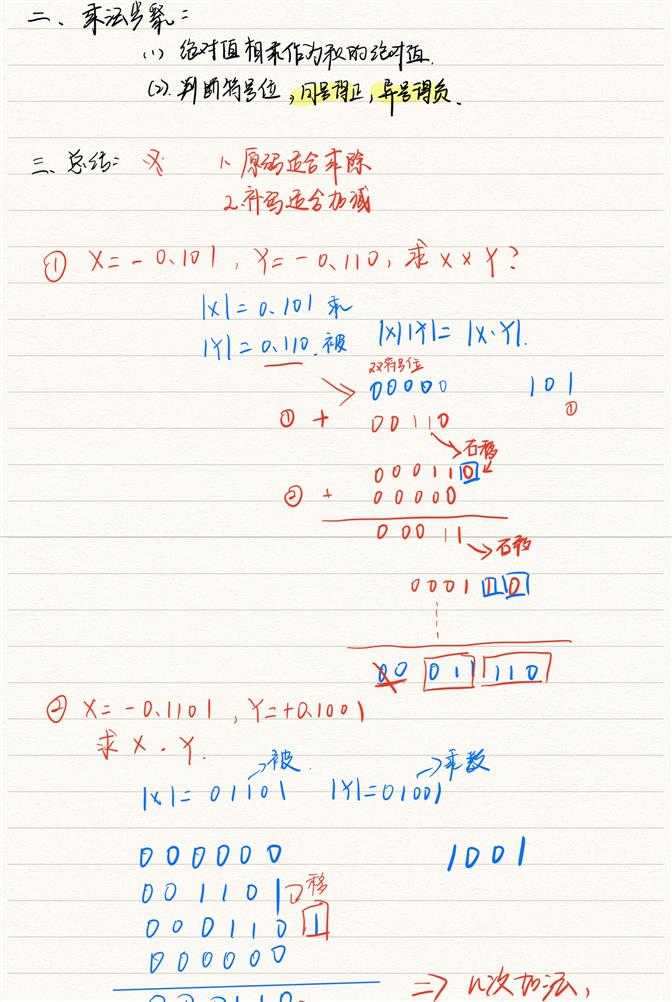 二、乘法步骤：
(1) 绝对值相乘作为积的绝对值.
(2). 判断符号位，同号得正，异号得负.
三、总结：
1. 原码适合乘除
2. 补码适合加减
① X=-0.101，Y=-0.110，求X×Y？
|X|=0.101 乘
|Y|=0.110. 被 |X||Y|=|X·Y|.
双符号位
00000 101
① + 00110 ①
右移
000110
② + 00000
00011
右移
000110
00 011110
② X=-0.1101，Y=+0.1001
求X·Y.
→被 →乘数
|X|=01101 |Y|=01001
000000 1001
001101 移
0001101
000000
⇒ n次加法，